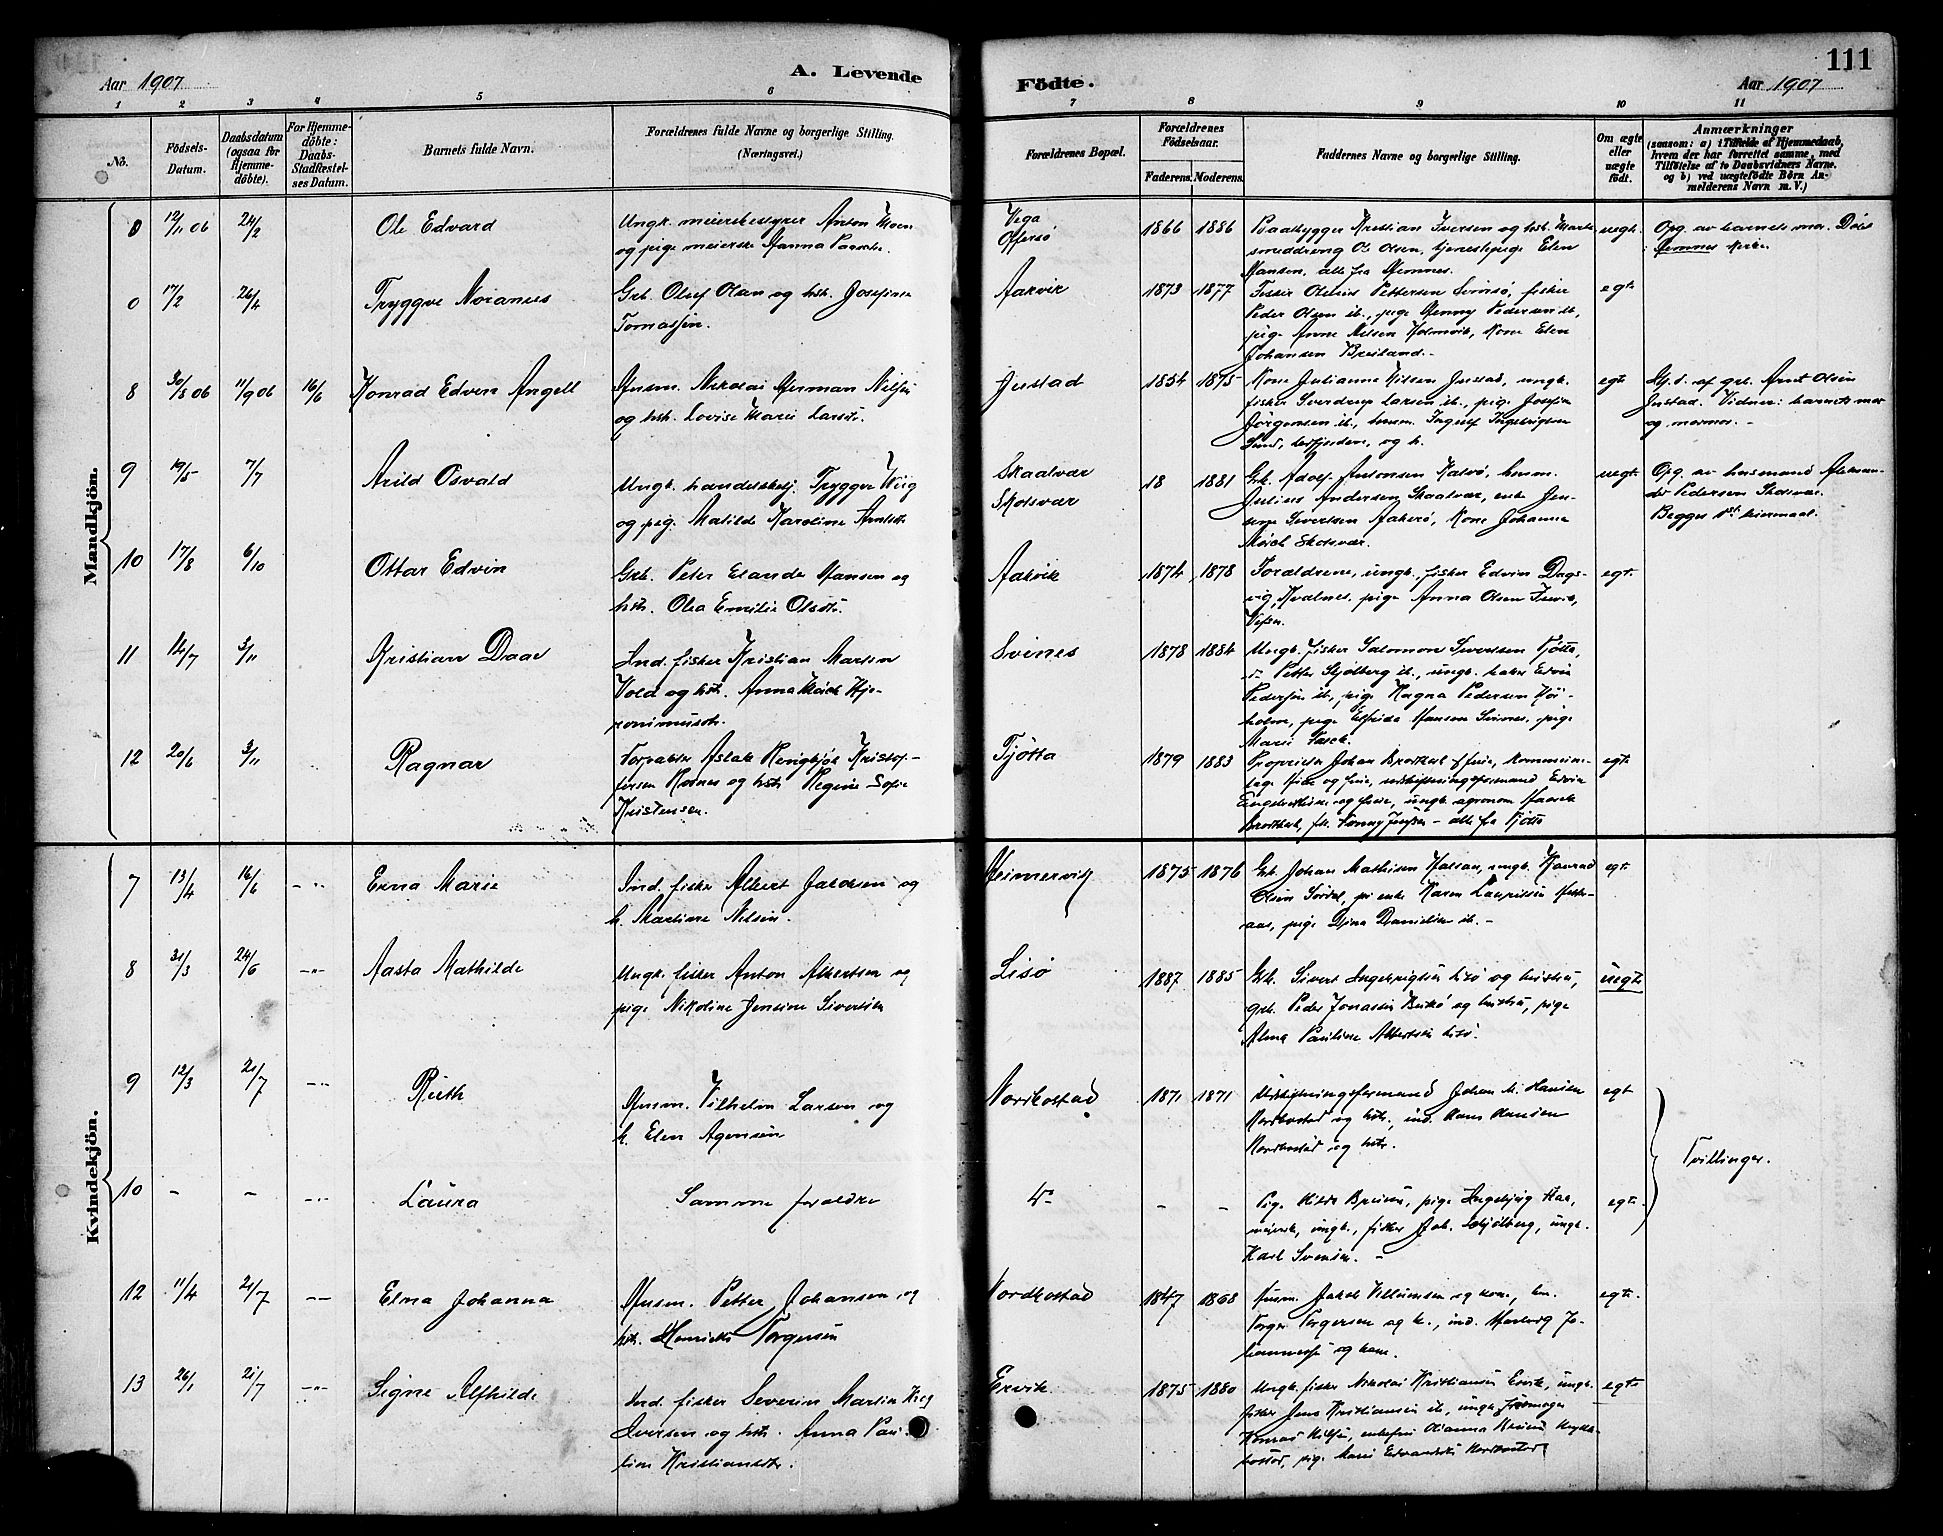 111
Aar 1907
A. Levende
Födte.
Aar 1907
1 2 3 4 5 6 7 8 9 10 11
No.
Födsels-
Datum.
Daabsdatum
(ogsaa for
Hjemme-
döbte).
For Hjemme-
döbte:
Daabs-
Stadfæstel-
ses Datum.
Barnets fulde Navn.
Forældrenes fulde Navne og borgerlige Stilling.
(Næringsvei.)
Forældrenes Bopæl.
Forældrenes
Födselsaar.
Faderens. Moderens.
Faddernes Navne og borgerlige Stilling.
Om ægte
eller
uægte
födt.
Anmærkninger
(saasom: a) i Tilfælde af Hjemmedaab,
hvem der har forrettet samme, med
Tilföielse af to Daabsvidners Navne.
og b) ved uægtefödte Börn An-
melderens Navn m. V.)
Mandkjön.
0 12/11 06 24/2 Ole Edvard
Ungk. meieribestyrer Anton Moen
og pige meierske Hanna
Vega
Offersö
1866 1886
Baadbygger Kristian Iversen og hst. Marte
smeddreng Ol. Olsen, tjenestepige Elen
Hansen, alle fra Hemnes.
uegt.
Opg. av barnets mor. Döbt
Hemnes kirke.
0 17/2 26/4 Tryggve Noranus
Grb. Oluf Olsen og hst. Josefine
Tomassen.
Aakvik
1873 1877
Fisker Olenius Pettersen fisker
Peder Olsen ib., pige Jenny Pedersen ib,
pige Anne Nilsen Holmvik, kone Elen
Johansen Breiland.-
egte
8 30/8 06 11/9 06 16/6 Konrad Edvin Angell
Husm. Nikolai Herman Nilsen
og hst. Lovise Marie Larsdt.
Justad
1854 1875
Kone Julianne Nilsen Justad, ungk.
fisker Sverdrup Larsen ib., pige Josefin
Jörgensen ib., husm. Ingulf Ingebrigtsen
Sund, og h.
egte
Hj.d. af grb. Arnt Olsen
Justad. Vidner: barnets mor
og mormor. -
9 19/5 7/7 Arild Osvald
Ungk. handelsbetj. Tryggve Wiig
og pige Matilde Karoline Arntsdt.
Skaalvær
Skotsvær
18 1881
Grb. Adolf Antonsen Kalvö, husm.
Julius Andersen Skaalvær, enke Jen-
sine Sivertsen Aakerö, kone Johanna
Skotsvær.
uegte
Opg. av husmand Aleksan-
der Pedersen Skotsvær.
Begges 1ste leiermaal.
10 17/8 6/10 Ottar Edvin
Grb. Peter Elande Hansen og
hst. Olea Emilie Olsdt.
Aakvik
1874 1878
Forældrene, ungk. fisker Edvin Dags-
vig, Kvalnes, pige Anna Olsen
Vefsn.
egt.
11 14/7 3/11 Kristian Daae
Ind. fisker Kristian Martin
Vold og hst. Anna Marie Hje-
ronimusdt.
Svines
1878 1884
Ungk. fisker Salomon Sivertsen Tjötta,
Petter Stjölberg ib., ungk. baker Edvin
Pedersen ib., pige Magna Pedersen Höi-
holm, pige Elfrida Hansen Svines, pige
Marie
12 20/6 3/11 Ragnar
Forpakter Aslak Rengbjör Kristof-
fersen Hornes og hst Regine Sofie
Kristensen.
Tjötta
1879 1883
Proprietær Johan Brodtkorb og frue,
og frue, udskiftningsformand Edvin
Engebrethsen og frue, ungk. agronom
Brodtkorb, frk. - alle fra Tjötta
egte
Kvindekjön.
7 13/4 16/6 - " - Erna Marie
Ind. fisker Albert Jakobsen og
h. Martine Nilsen.
Heimervig
1875 1876
Grb. Johan Mathisen Halsan, ungk. Konrad
Olsen enke Karen Lauritsen
aas, pige Dina Danielsen ib. -
egt.
8 31/3 24/6 - " - Aasta Mathilde
Ungk. fisker Anton Albertsen og
pige Nikoline Jensine Sivertsen
Lisö
1887 1885
Grb. Sivert Ingebrigtsen Lisö og hustru,
grb. Peder Jonassen og hustru, pige
Alma Pauline Albertsen Lisö.
uegte
9 12/3 21/7 - " - Ruth
Husm. Vilhelm Larsen og
h. Elen Agensen
Nordkostad
1871 1871
Udskiftningsformand Johan M. Hansen
Nordkostad og hst., ind. Hans Hansen
Nordkostad og hst.
egt
Tvillinger.
10 - - - " - Laura
Samme forældre
- -
Pige Hilda pige Ingebjrig
meierske, ungk., fisker Joh. Stjölberg, ungk.
Karl Svensen. -
egte.
12 11/4 21/7 - - Elna Johanna
Husm. Petter Johansen og
hst. Henrikke Torgersen
Nordkostad
1847 1868
Husm. Jakob Villumsen og kone,
Torger Torgersen og h., ind. Hartvig Jo-
hannessen og kone.
egte.
13 26/1 21/7 - " - Signe Alfhilde
Ind. fisker Severin Martin
Iversen og hst. Anna Pau-
line Kristiansdt.
Ervik
1875 1880
Ungk. fisker Nikolai Kristiansen Ervik, ungk.
fisker Jens Kristiansen ib, ungk.
Konrad Nilsen, enkefru Dianna
kostad, pige Marie Edvardsen Nordkostad
egte